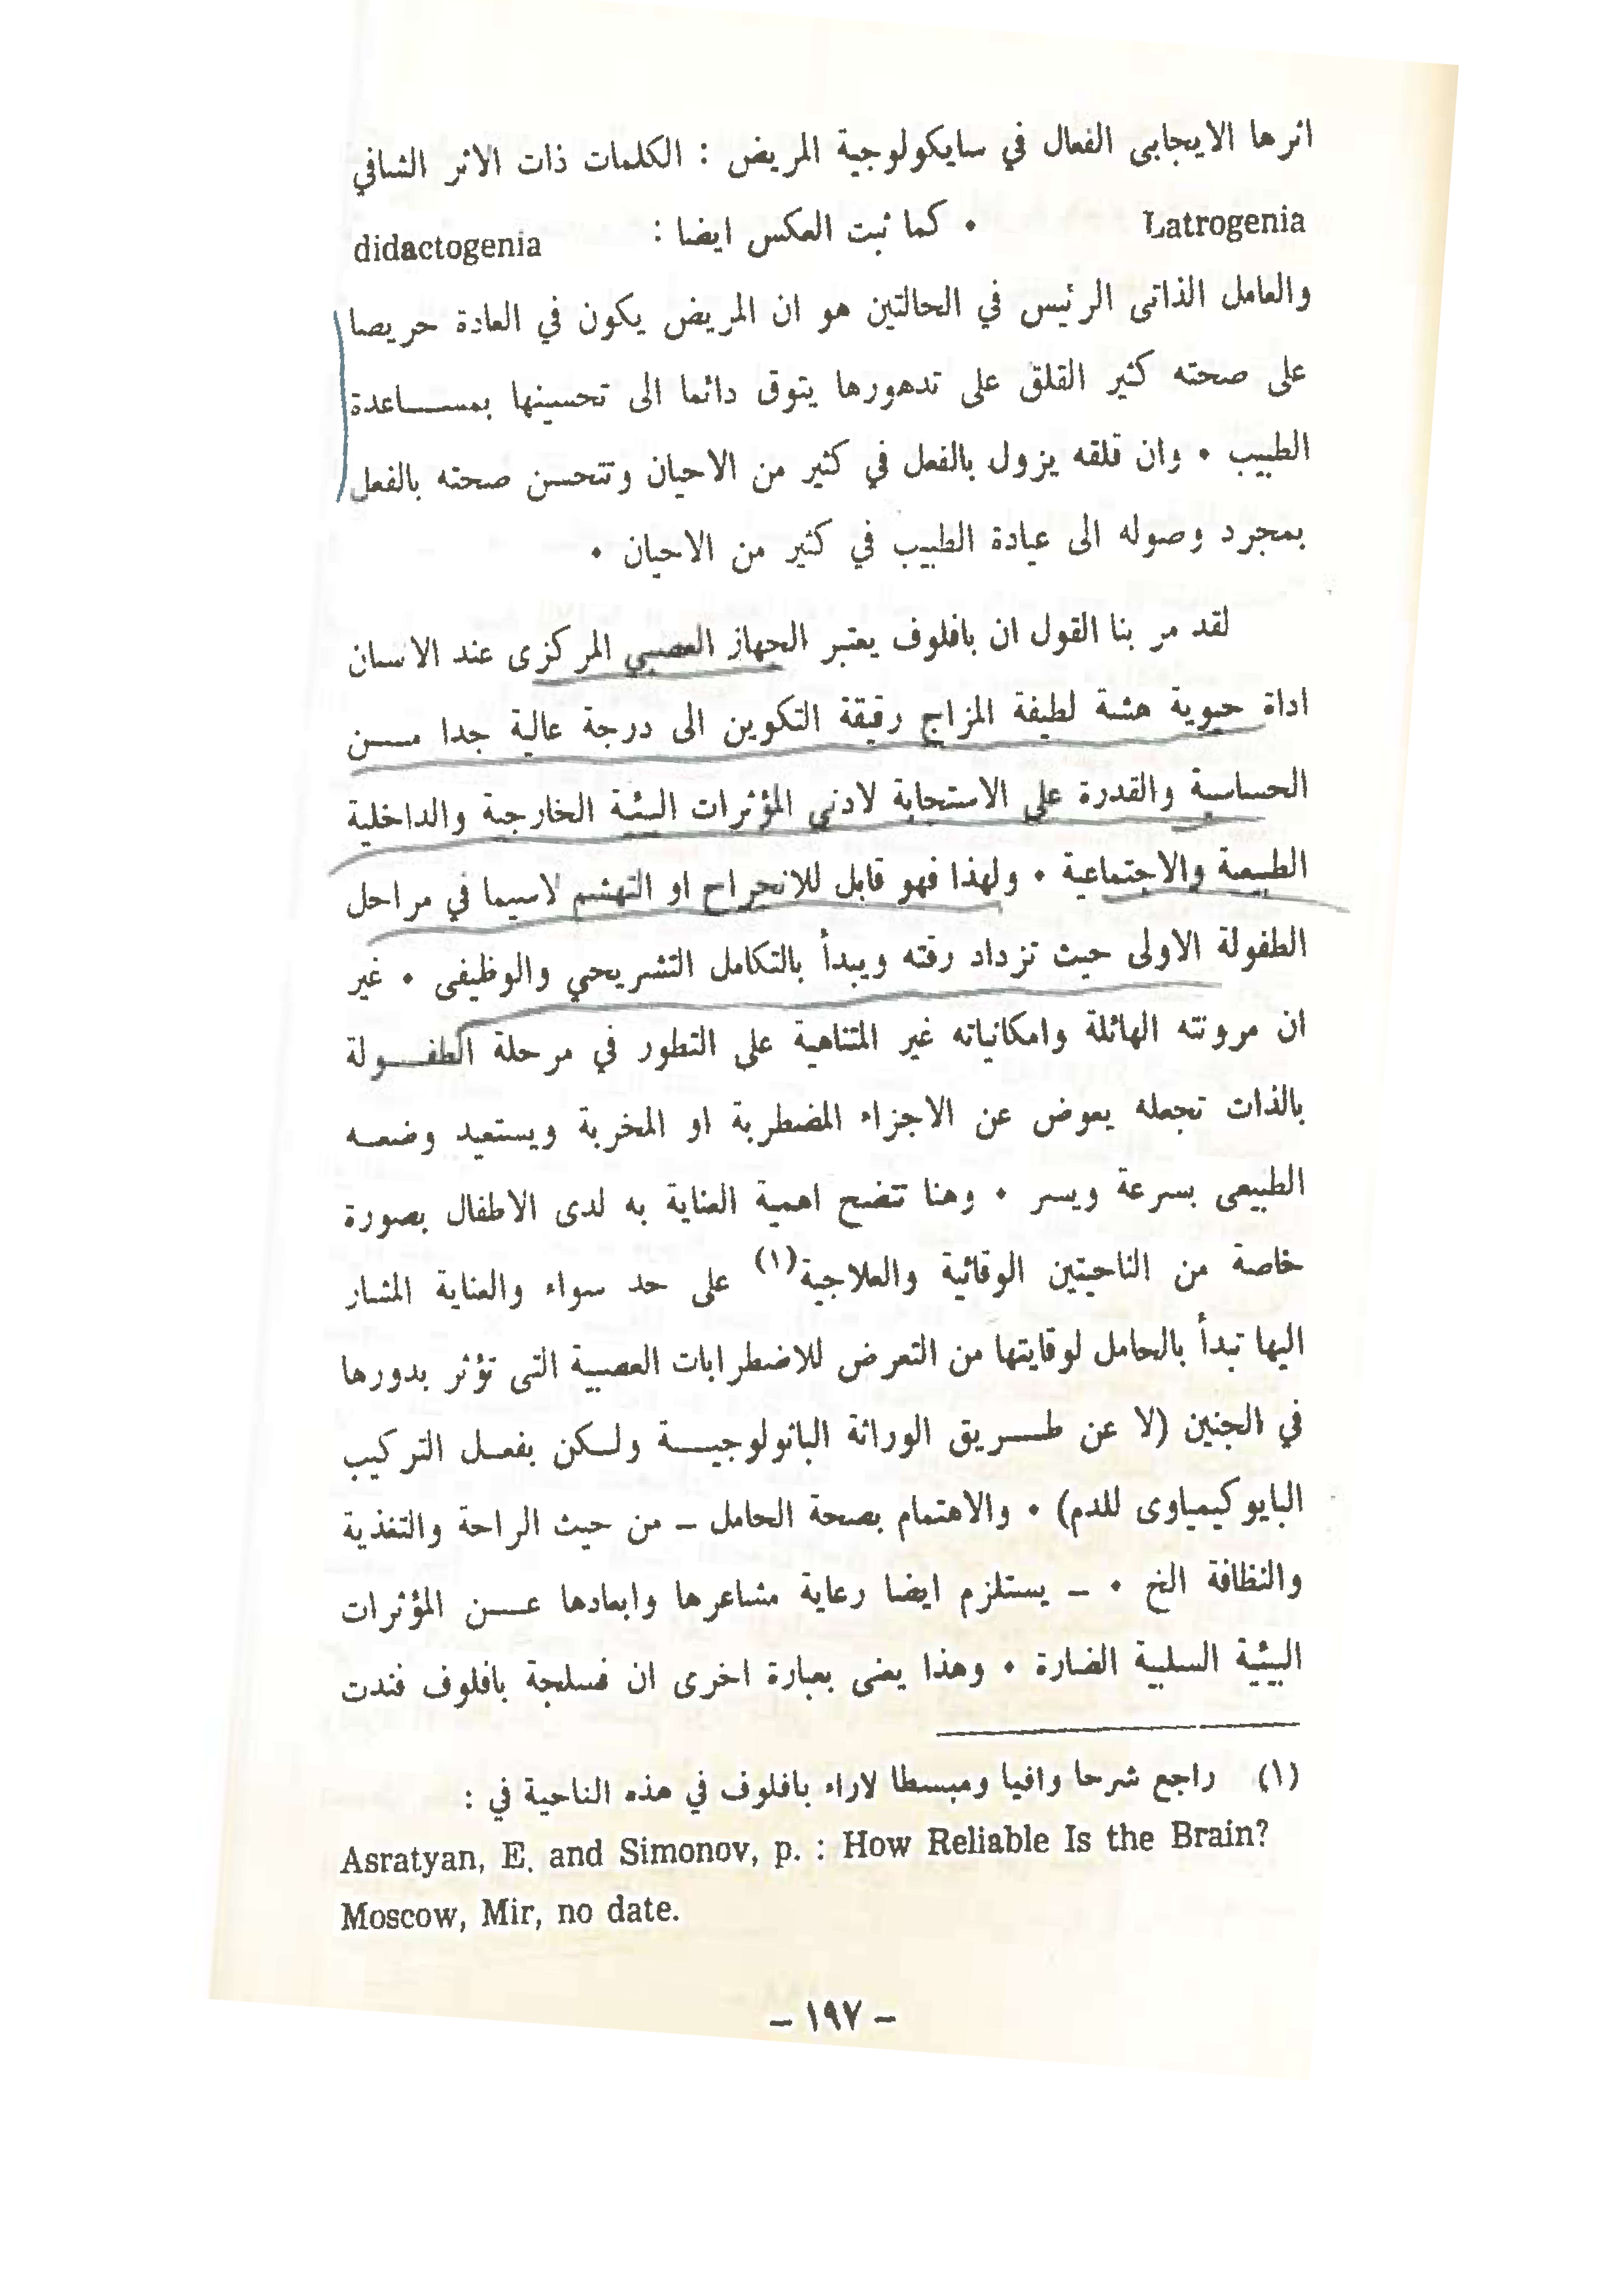 اثرها الايجابى الفعال في سايكولوجية المريض : الكلمات ذات الاثر الشافي
Latrogenia ٠ كما ثبت العكس ايضا : didactogenia
والعامل الذاتى الرئيس في الحالتين هو ان المريض يكون في العادة حريصا
على صحته كثير القلق على تدهورها يتوق دائما الى تحسينها بمســـاعدة
الطبيب ٠ وان قلقه يزول بالفعل في كثير من الاحيان وتتحسن صحته بالفعل
بمجرد وصوله الى عيادة الطبيب في كثير من الاحيان ٠
لقد مر بنا القول ان بافلوف يعتبر الجهاز العصبي المركزى عند الانسان
اداة حيوية هشة لطيفة المزاج رقيقة التكوين الى درجة عالية جدا مــن
الحساسية والقدرة على الاستجابة لادنى المؤثرات البيئة الخارجية والداخلية
الطبيعية والاجتماعية ٠ ولهذا فهو قابل للانجراح او التهشم لاسيما في مراحل
الطفولة الاولى حيث تزداد رقته ويبدأ بالتكامل التشريحي والوظيفى ٠ غير
ان مرونته الهائلة وامكانياته غير المتناهية على التطور في مرحلة الطفــولة
بالذات تجعله يعوض عن الاجزاء المضطربة او المخربة ويستعيد وضعـه
الطبيعى بسرعة ويسر ٠ وهنا تتضح اهمية العناية به لدى الاطفال بصورة
خاصة من الناحيتين الوقائية والعلاجية(١) على حد سواء والعناية المشار
اليها تبدأ بالحامل لوقايتها من التعرض للاضطرابات العصبية التى تؤثر بدورها
في الجنين (لا عن طــريق الوراثة الباثولوجيــة ولـكن بفعـل التركيب
البايوكيمياوى للدم) ٠ والاهتمام بصحة الحامل ـ من حيث الراحة والتغذية
والنظافة الخ ٠ ـ يستلزم ايضا رعاية مشاعرها وابعادها عــن المؤثرات
البيئية السلبية الضارة ٠ وهذا يعنى بعبارة اخرى ان فسلجة بافلوف فندت
(١) راجع شرحا وافيا ومبسطا لاراء بافلوف في هذه الناحية في :
Asratyan, E. and Simonov, p. : How Reliable Is the Brain?
Moscow, Mir, no date.
ـ ١٩٧ ـ